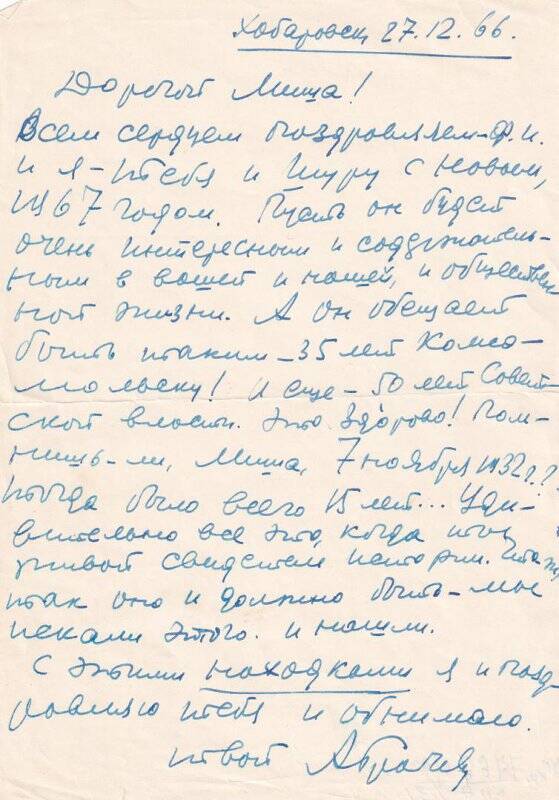 Хабаровск 27.12.66.
Дорогой Миша!
Всем сердцем поздравляем – Ф.И.
и я – тебя и Шуру с новым,
1967 годом. Пусть он будет
очень интересным и содержатель-
ным в вашей и нашей, и обществен-
ной жизни. А он обещает
быть таким – 35 лет Комсо-
мольску! И еще – 50 лет Совет-
ской власти. Это здорово! Пом-
нишь-ли, Миша, 7 ноября 1932 г.?
Тогда было всего 15 лет... Уди-
вительно все это, когда ты
живой свидетель истории.
так оно и должно быть – мы
искали этого. и нашли.
С этими находками я и позд-
равляю тебя и обнимаю.
твой